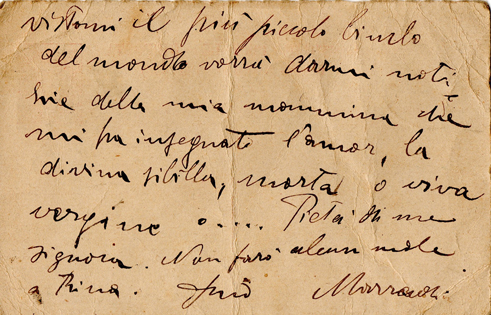 vistomi il più piccolo bimbo
del mondo vorrà darmi noti
zie della mia mammina che
mi ha insegnato l'amor, la
divina sibilla, morta o viva
vergine o.... Pietà di me
signora. Non farò alcun male
a Rina. Suo